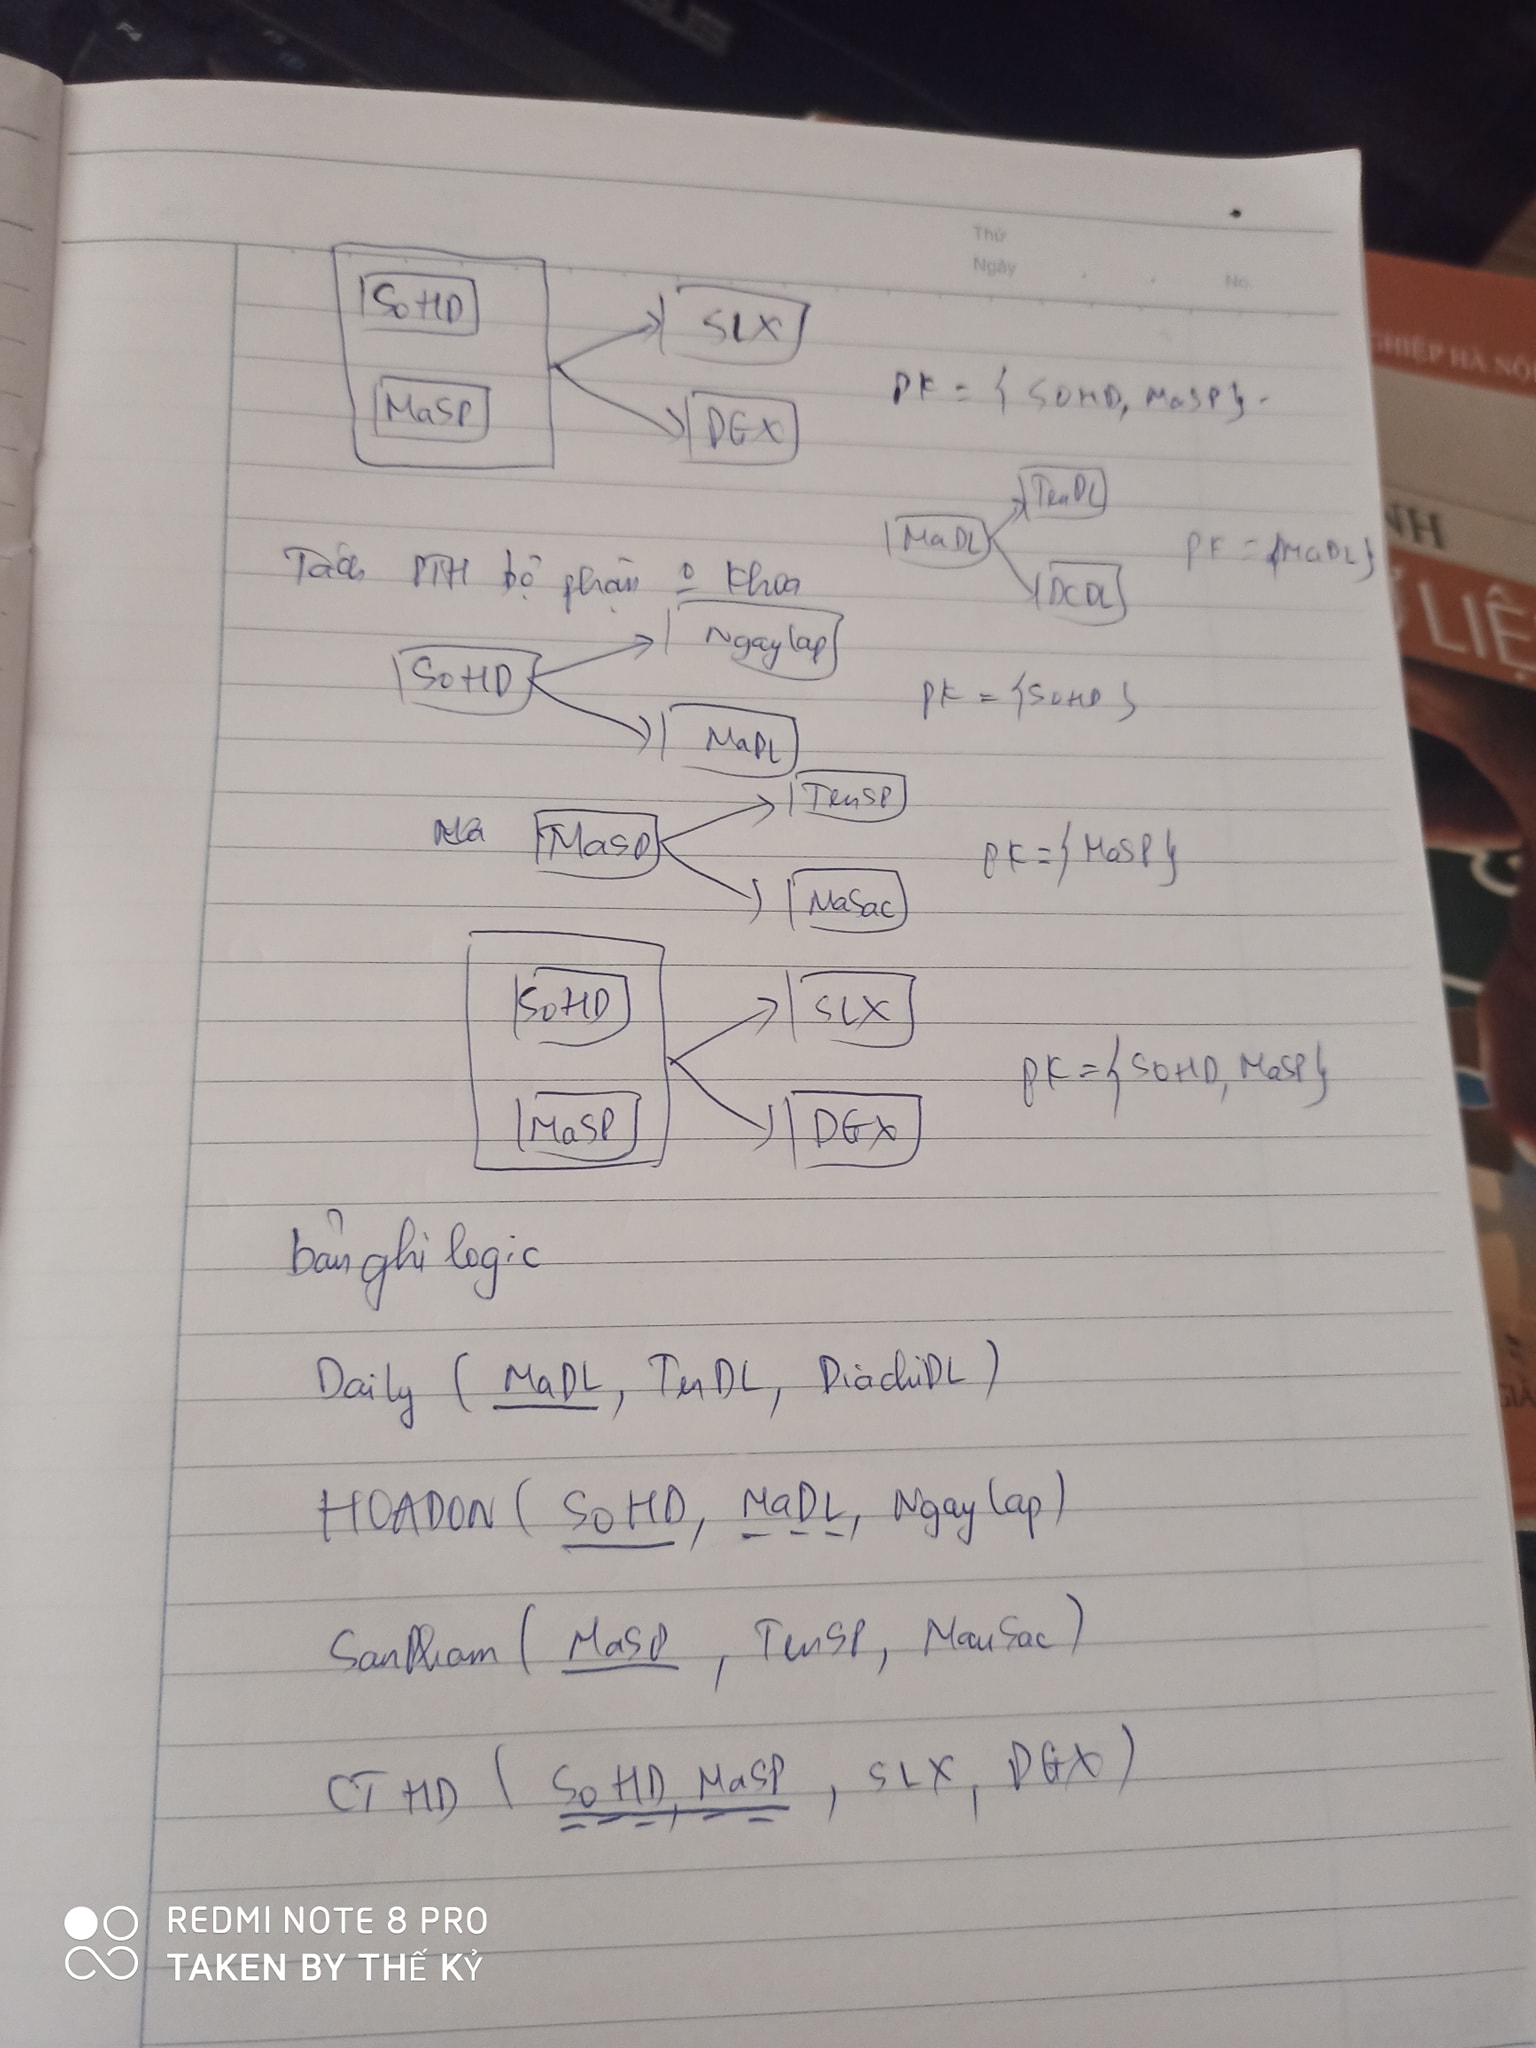 Thứ
Ngày
No.
SoHD
SLX
MaSP
DGX
PK = { SOHD, MaSP}.
TenDL
MaDL
PK = {MaDL}
DCDL
Tách PTH bộ phận o khoa
Ngaylap
SoHD
PK = {SOHD}
MaDL
TenSP
MaSP
PK = { MaSP}
MaSac
SoHD
SLX
PK = { SOHD, MaSP}
MaSP
DGX
bản ghi logic
Daily ( MaDL, TenDL, DiachiDL )
HOADON ( SoHD, MaDL, Ngaylap )
SanPham ( MaSP , TenSP, MauSac )
CTHD ( SoHD, MaSP , SLX, DGX )
NGHIỆP HÀ NỘI
NH
LIỆ
REDMI NOTE 8 PRO
TAKEN BY THẾ KỶ